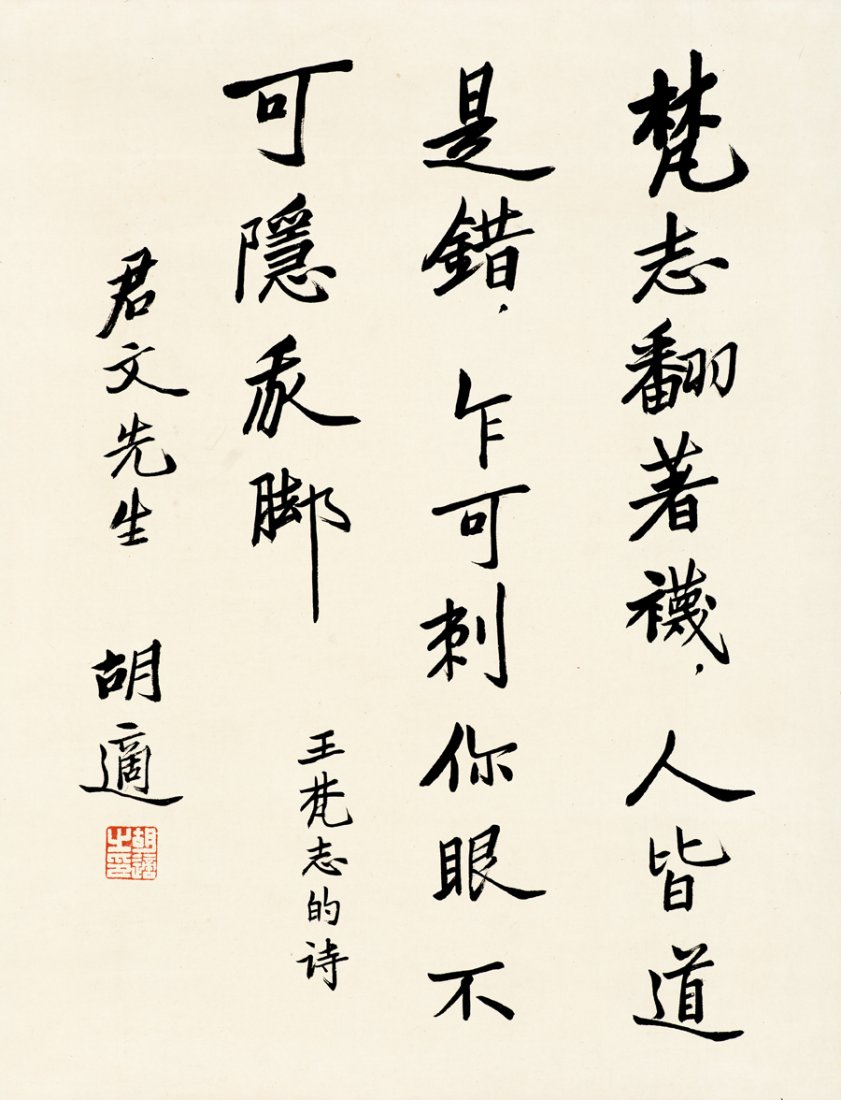 梵志翻著襪，人皆道
是錯，乍可刺你眼不
可隱我脚
王梵志的诗
君文先生
胡適
胡適之印